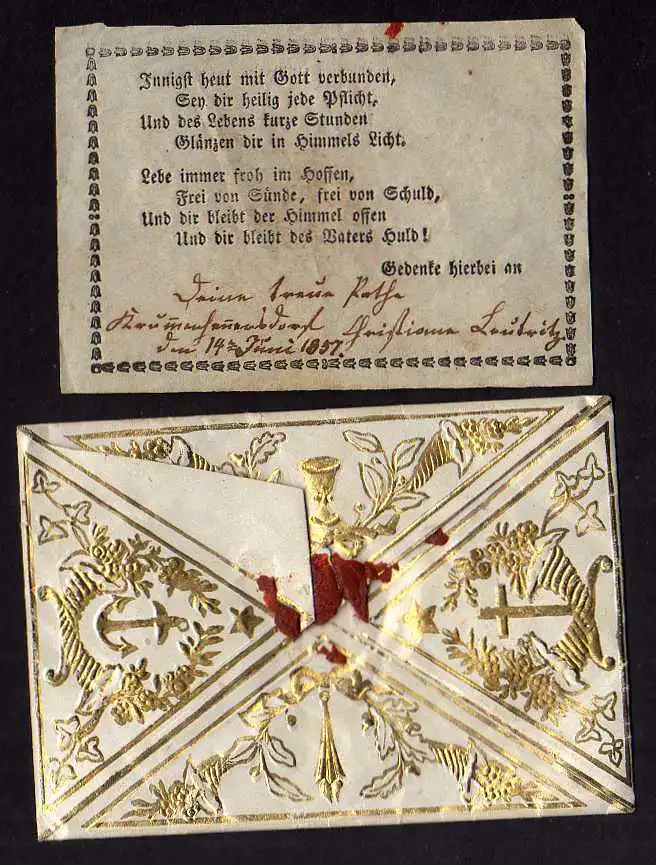 Innigst heut mit Gott verbunden,
Sey dir heilig jede Pflicht,
Und des Lebens kurze Stunden
Glänzen dir in Himmels Licht.
Lebe immer froh im Hoffen,
Frei von Sünde, frei von Schuld,
Und dir bleibt der Himmel offen
Und dir bleibt des Vaters Huld!
Gedenke hierbei an
Deine treue Pathe
Krummenhennersdorf Christiane Leutritz
den 14t Juni 1857.